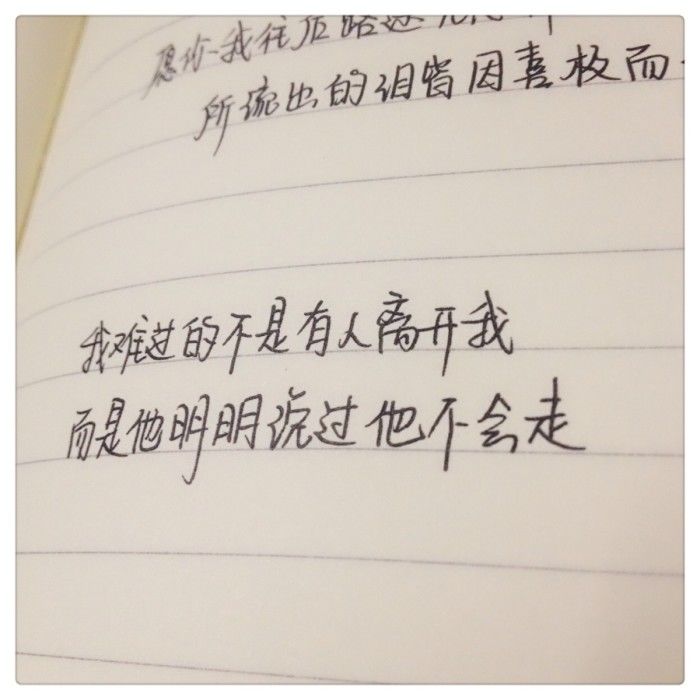 愿你我往后路途
所流出的泪皆因喜极而
我难过的不是有人离开我
而是他明明说过他不会走